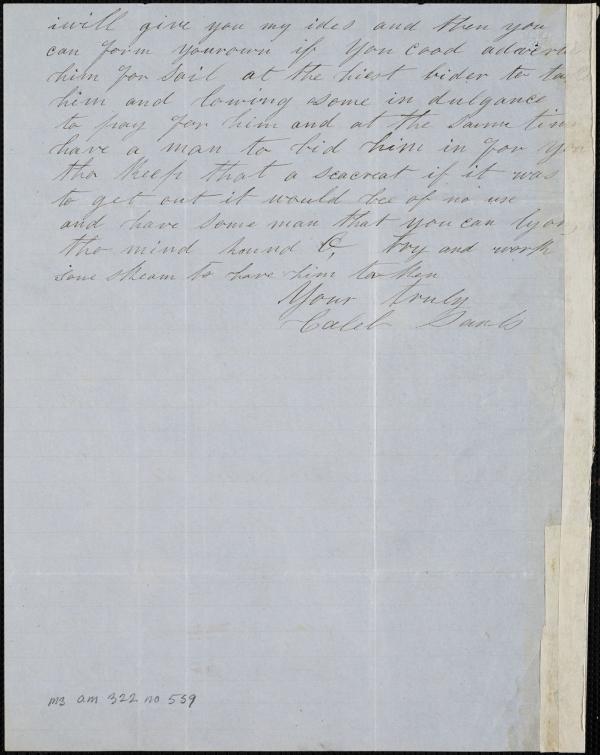 iwill give you my ides and then you
can form yourown if you cood
him for sail at the hiest bider to
him and lowing some in dulgance
to pay for him and at the saume
have a man to bid him in for you
tho keep that a seacreat if it was
to get out it would bee of no use
and have some man that you can
tho mind hound &c, try and work
some skeam to have him taken
Your truly
Caleb
ms am 322 no 559